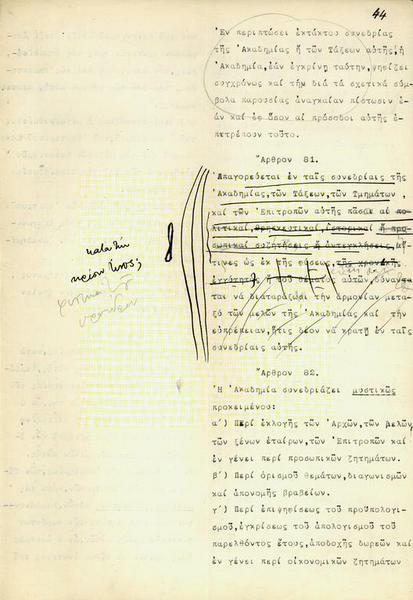 44
Ἐν περιπτώσει ἐκτάκτου συνεδρίας
τῆς Ἀκαδημίας ἤ τῶν Τάξεων αὐτῆς, ἡ
Ἀκαδημία, ἐάν ἐγκρίνῃ ταύτην, ψηφίζει
συγχρόνως καί τήν διά τά σχετικά σύμ-
βολα παρουσίας ἀναγκαίαν πίστωσιν ἐ-
άν καί ἐφ' ὅσον αἱ πρόσοδοι αὐτῆς ἐ-
πιτρέπουν τοῦτο.
Ἄρθρον 81.
Ἀπαγορεύεται ἐν ταῖς συνεδρίαις τῆς
Ἀκαδημίας, τῶν Τάξεων, τῶν Τμημάτων,
καί τῶν Ἐπιτροπῶν αὐτῆς πᾶσαι αἱ πο-
λιτικαί, θρησκευτικαί, ἱστορικαί ἤ προ-
σωπικαί συζητήσεις ἤ ἀντεγκλήσεις, αἵ-
τινες ὡς ἐκ τῆς φύσεως, τῆς χρονικῆς
ἐγγύτητος ἤ τοῦ θέματος αὐτῶν δύναν-
ται νά διαταράξωσι τήν ἁρμονίαν μετα-
ξύ τῶν μελῶν τῆς Ἀκαδημίας καί τήν
εὐπρέπειαν, ἥτις δέον νά κρατῇ ἐν ταῖς
συνεδρίαις αὐτῆς.
Ἄρθρον 82.
Ἡ Ἀκαδημία συνεδριάζει μυστικῶς
προκειμένου:
α') Περί ἐκλογῆς τῶν Ἀρχῶν, τῶν μελῶν,
τῶν ξένων ἑταίρων, τῶν Ἐπιτροπῶν καί
ἐν γένει περί προσωπικῶν ζητημάτων.
β') Περί ὁρισμοῦ θεμάτων, διαγωνισμῶν
καί ἀπονομῆς βραβείων.
γ') Περί ἐπιψηφίσεως τοῦ προϋπολογι-
σμοῦ, ἐγκρίσεως τοῦ ἀπολογισμοῦ τοῦ
παρελθόντος ἔτους, ἀποδοχῆς δωρεῶν καί
ἐν γένει περί οἰκονομικῶν ζητημάτων